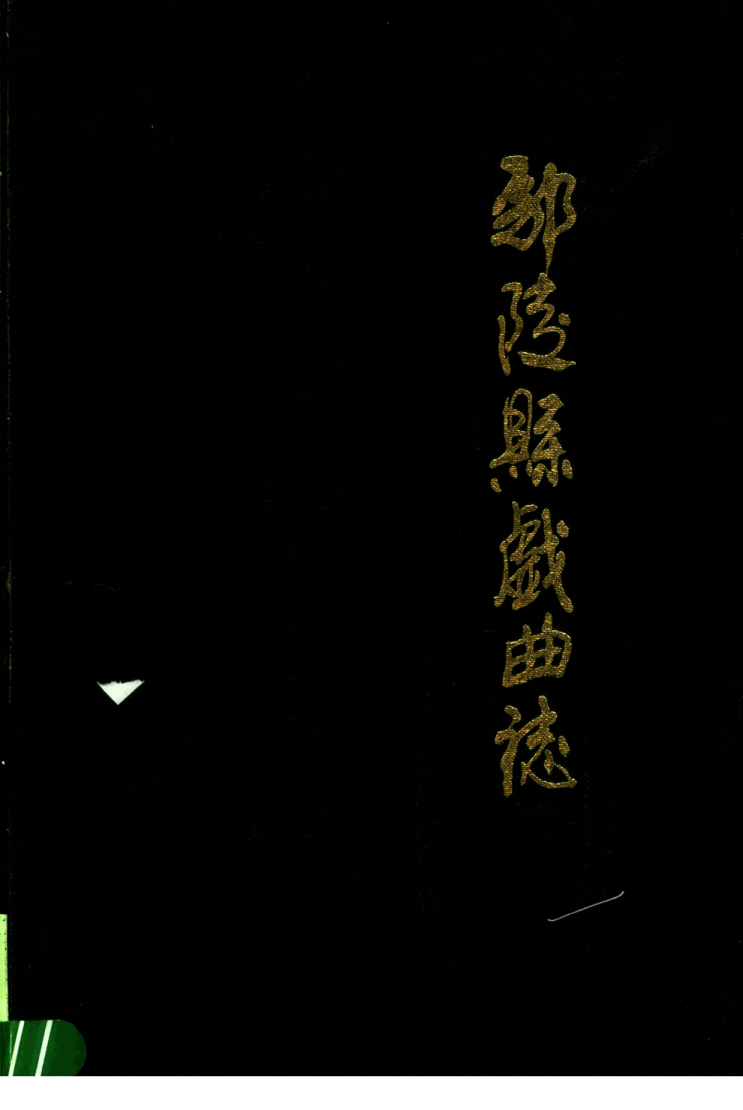 鄢陵縣戲曲誌